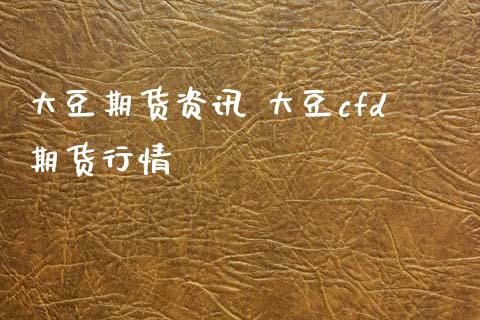 大豆期货资讯 大豆cfd
期货行情